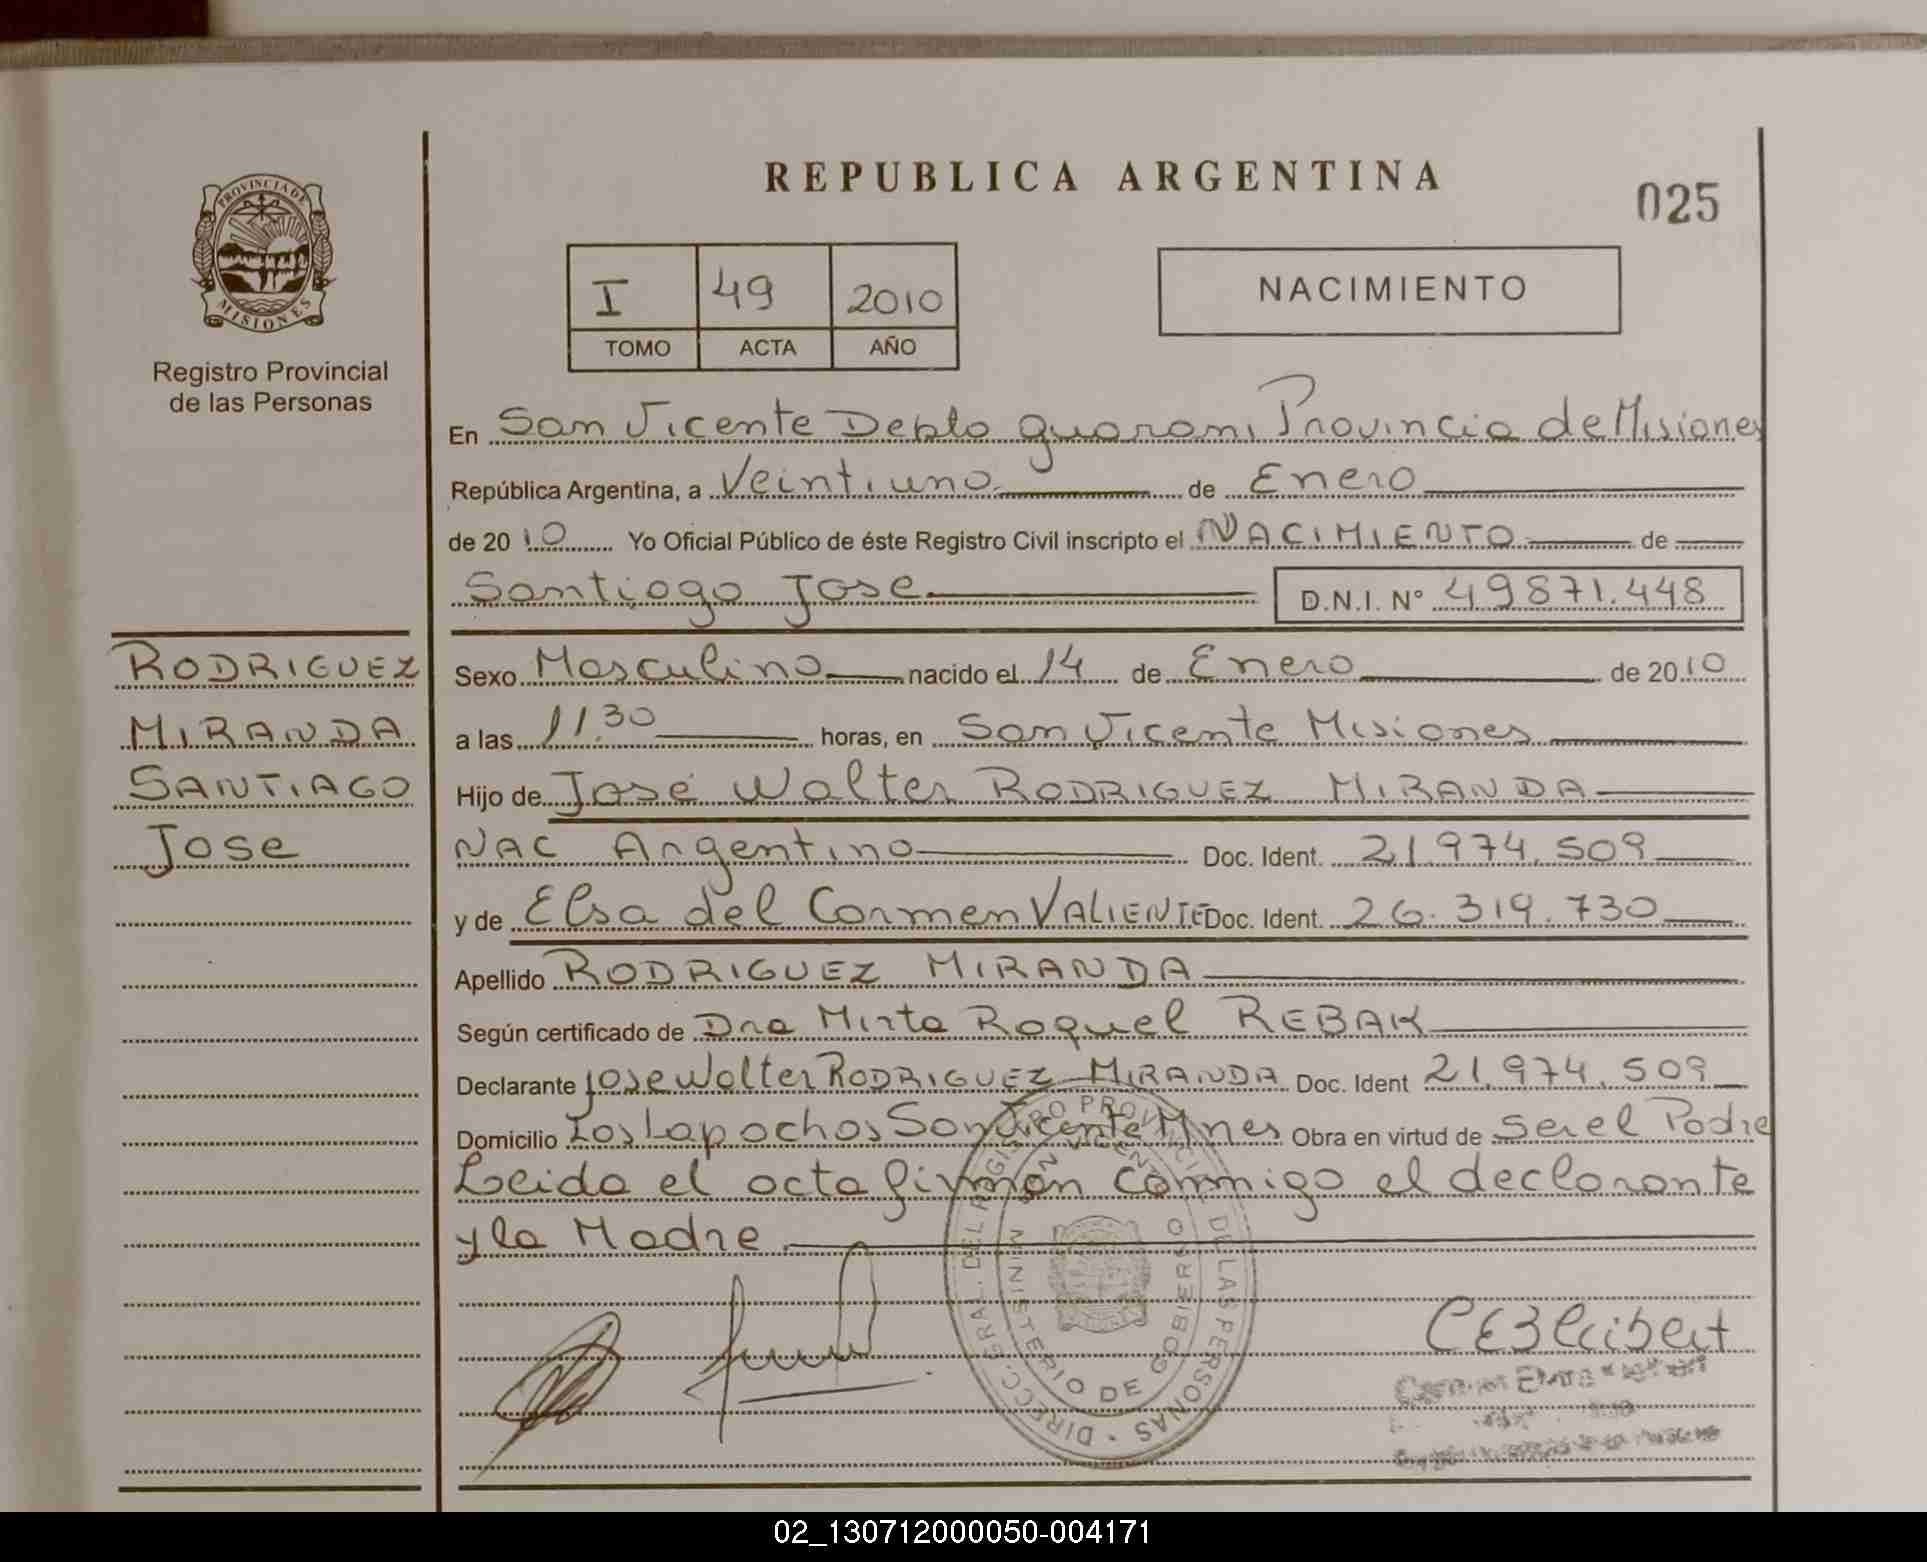 REPUBLICA ARGENTINA
025
PROVINCIA DE
MISIONES
Registro Provincial
de las Personas
I 49 2010
TOMO ACTA AÑO
NACIMIENTO
En San Vicente Depto guarani Provincia de Misiones
República Argentina, a Veintiuno de Enero
de 2010 Yo Oficial Público de éste Registro Civil inscripto el NACIMIENTO de
Santiago Jose D.N.I. N° 49871.448
RODRIGUEZ
MIRANDA
SANTIAGO
Jose
Sexo Masculino nacido el 14 de Enero de 2010
a las 11.30 horas, en San Vicente Misiones
Hijo de José Walter RODRIGUEZ MIRANDA
NAC Argentino Doc. Ident. 21.974.509
y de Elsa del Carmen VALIENTE Doc. Ident. 26.319.730
Apellido RODRIGUEZ MIRANDA
Según certificado de Dra Mirta Raquel REBAK
Declarante Jose Walter RODRIGUEZ MIRANDA Doc. Ident 21.974.509
Domicilio Los Lapachos San Vicente Mnes Obra en virtud de Ser el Padre
Leida el acta firman conmigo el declarante
y la Madre
DIRECC. GRAL. DEL REGISTRO PROVINCIAL DE LAS PERSONAS
SAN VICENTE
MINISTERIO DE GOBIERNO
02_130712000050-004171